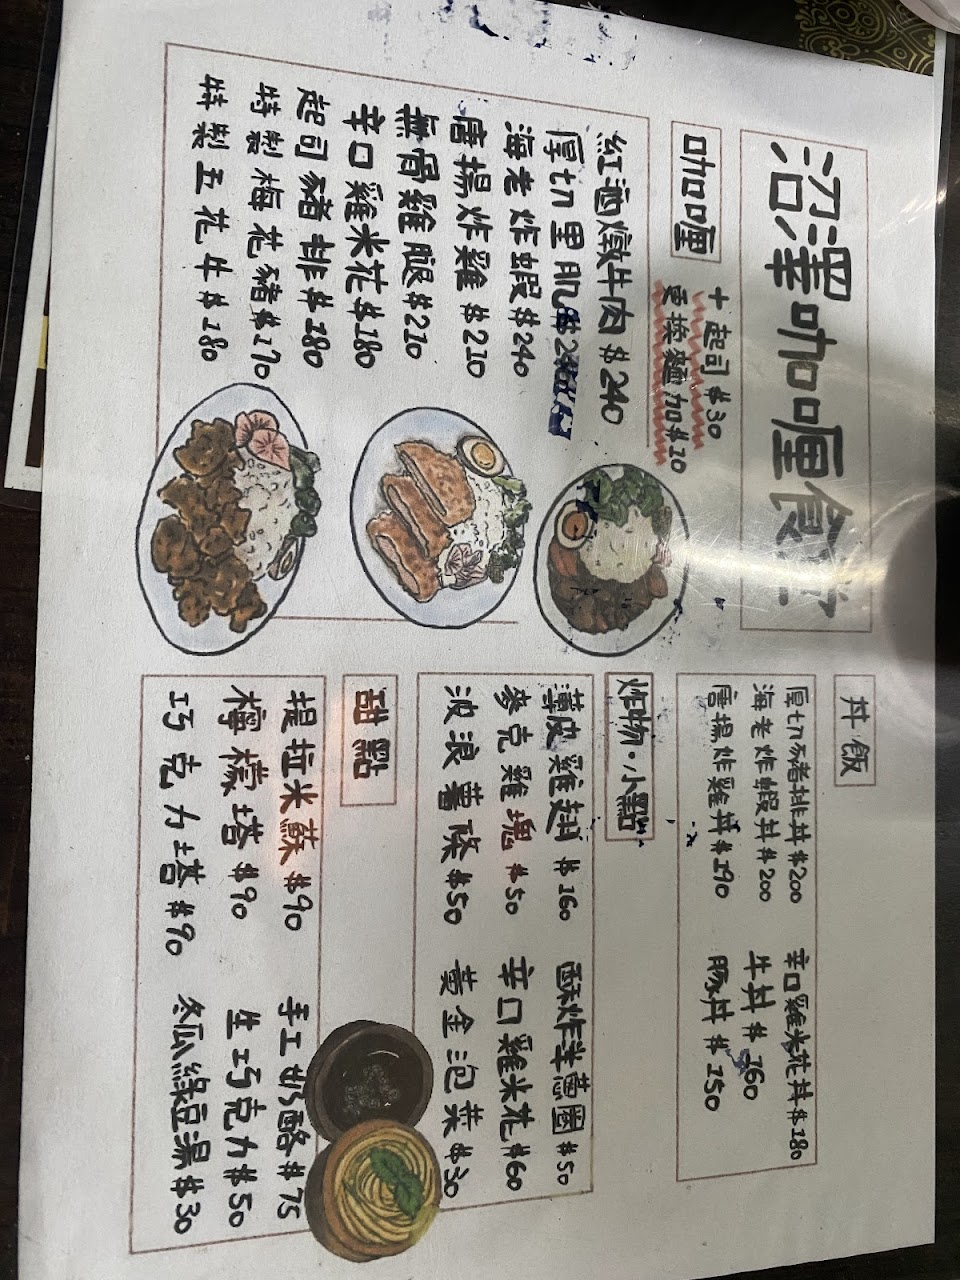 沼澤咖哩食堂
咖哩
+起司 $30
更換麵加$10
紅酒燉牛肉 $240
厚切里肌
海老炸蝦 $240
唐揚炸雞 $210
無骨雞腿 $210
辛口雞米花 $180
起司豬排 $180
特製梅花豬 $170
特製五花牛 $180
丼飯
厚切豬排丼 $200
海老炸蝦丼 $200
唐揚炸雞丼 $190
辛口雞米花丼 $180
牛丼 $160
豚丼 $150
炸物・小點
薄皮雞翅 $160
麥克雞塊 $50
波浪薯條 $50
酥炸洋蔥圈 $50
辛口雞米花 $60
黃金泡菜 $30
甜點
提拉米蘇 $90
檸檬塔 $90
巧克力塔 $90
手工奶酪 $75
生巧克力 $50
冬瓜綠豆湯 $30